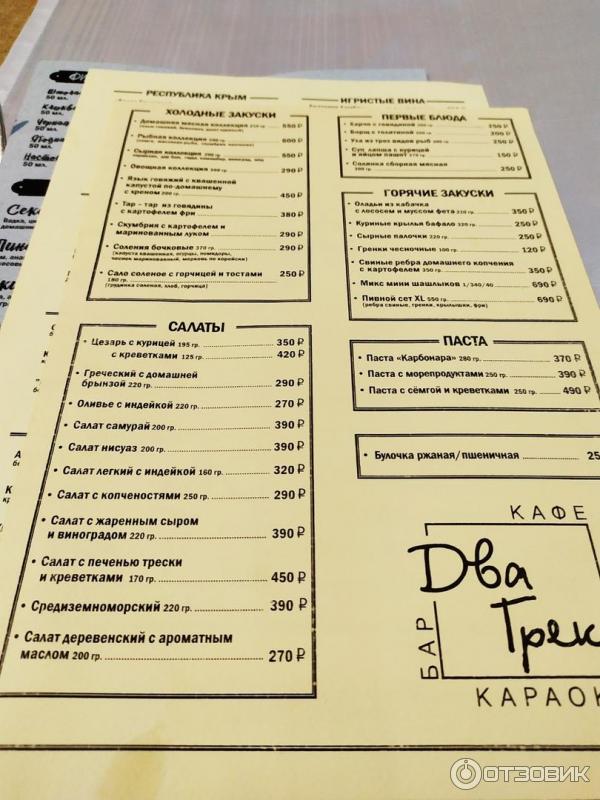 РЕСПУБЛИКА КРЫМ
ИГРИСТЫЕ ВИНА
ХОЛОДНЫЕ ЗАКУСКИ
• Домашняя мясная коллекция 250 гр 550 ₽
• Рыбная коллекция 600 ₽
• Сырная коллекция 550 ₽
• Овощная коллекция 290 ₽
• Язык говяжий с квашенной
капустой по-домашнему
с хреном 200 гр. 450 ₽
• Тар - тар из говядины
с картофелем фри 380 ₽
• Скумбрия с картофелем и
маринованным луком 290 ₽
• Соления бочковые 370 гр. 290 ₽
(капуста квашенная, огурцы, помидоры,
чеснок маринованный, морковь по корейски)
• Сало соленое с горчицей и тостами 250 ₽
180 гр.
(грудинка соленая, хлеб, горчица)
САЛАТЫ
• Цезарь с курицей 195 гр. 350 ₽
с креветками 125 гр. 420 ₽
• Греческий с домашней
брынзой 220 гр. 290 ₽
• Оливье с индейкой 220 гр. 270 ₽
• Салат самурай 200 гр. 390 ₽
• Салат нисуаз 200 гр. 390 ₽
• Салат легкий с индейкой 160 гр. 320 ₽
• Салат с копченостями 250 гр. 290 ₽
• Салат с жаренным сыром
и виноградом 220 гр. 390 ₽
• Салат с печенью трески
и креветками 170 гр. 450 ₽
• Средиземноморский 220 гр. 390 ₽
• Салат деревенский с ароматным
маслом 200 гр. 270 ₽
ПЕРВЫЕ БЛЮДА
• Харчо с говядиной 250 ₽
• Борщ с телятиной 300 гр 200 ₽
• Уха из трех видов рыб 300 гр 250 ₽
• Суп лапша с курицей
и яйцом пашот 370 гр 150 ₽
• Солянка сборная мясная
300 гр. 250 ₽
ГОРЯЧИЕ ЗАКУСКИ
• Оладьи из кабачка
с лососем и муссом фета 220 гр. 350 ₽
• Куриные крылья бафало 320 гр. 250 ₽
• Сырные палочки 220 гр. 250 ₽
• Гренки чесночные 100 гр. 120 ₽
• Свиные ребра домашнего копчения
с картофелем 350 гр. 350 ₽
• Микс мини шашлыков 1/340/40 690 ₽
• Пивной сет XL 550 гр. 690 ₽
(ребра свиные, гренки, крылышки, фри)
ПАСТА
• Паста «Карбонара» 280 гр. 370 ₽
• Паста с морепродуктами 250 гр. 390 ₽
• Паста с сёмгой и креветками 250 гр. 490 ₽
• Булочка ржаная/пшеничная 25
КАФЕ
Два
Грек
БАР
КАРАОК
ОТЗОВИК